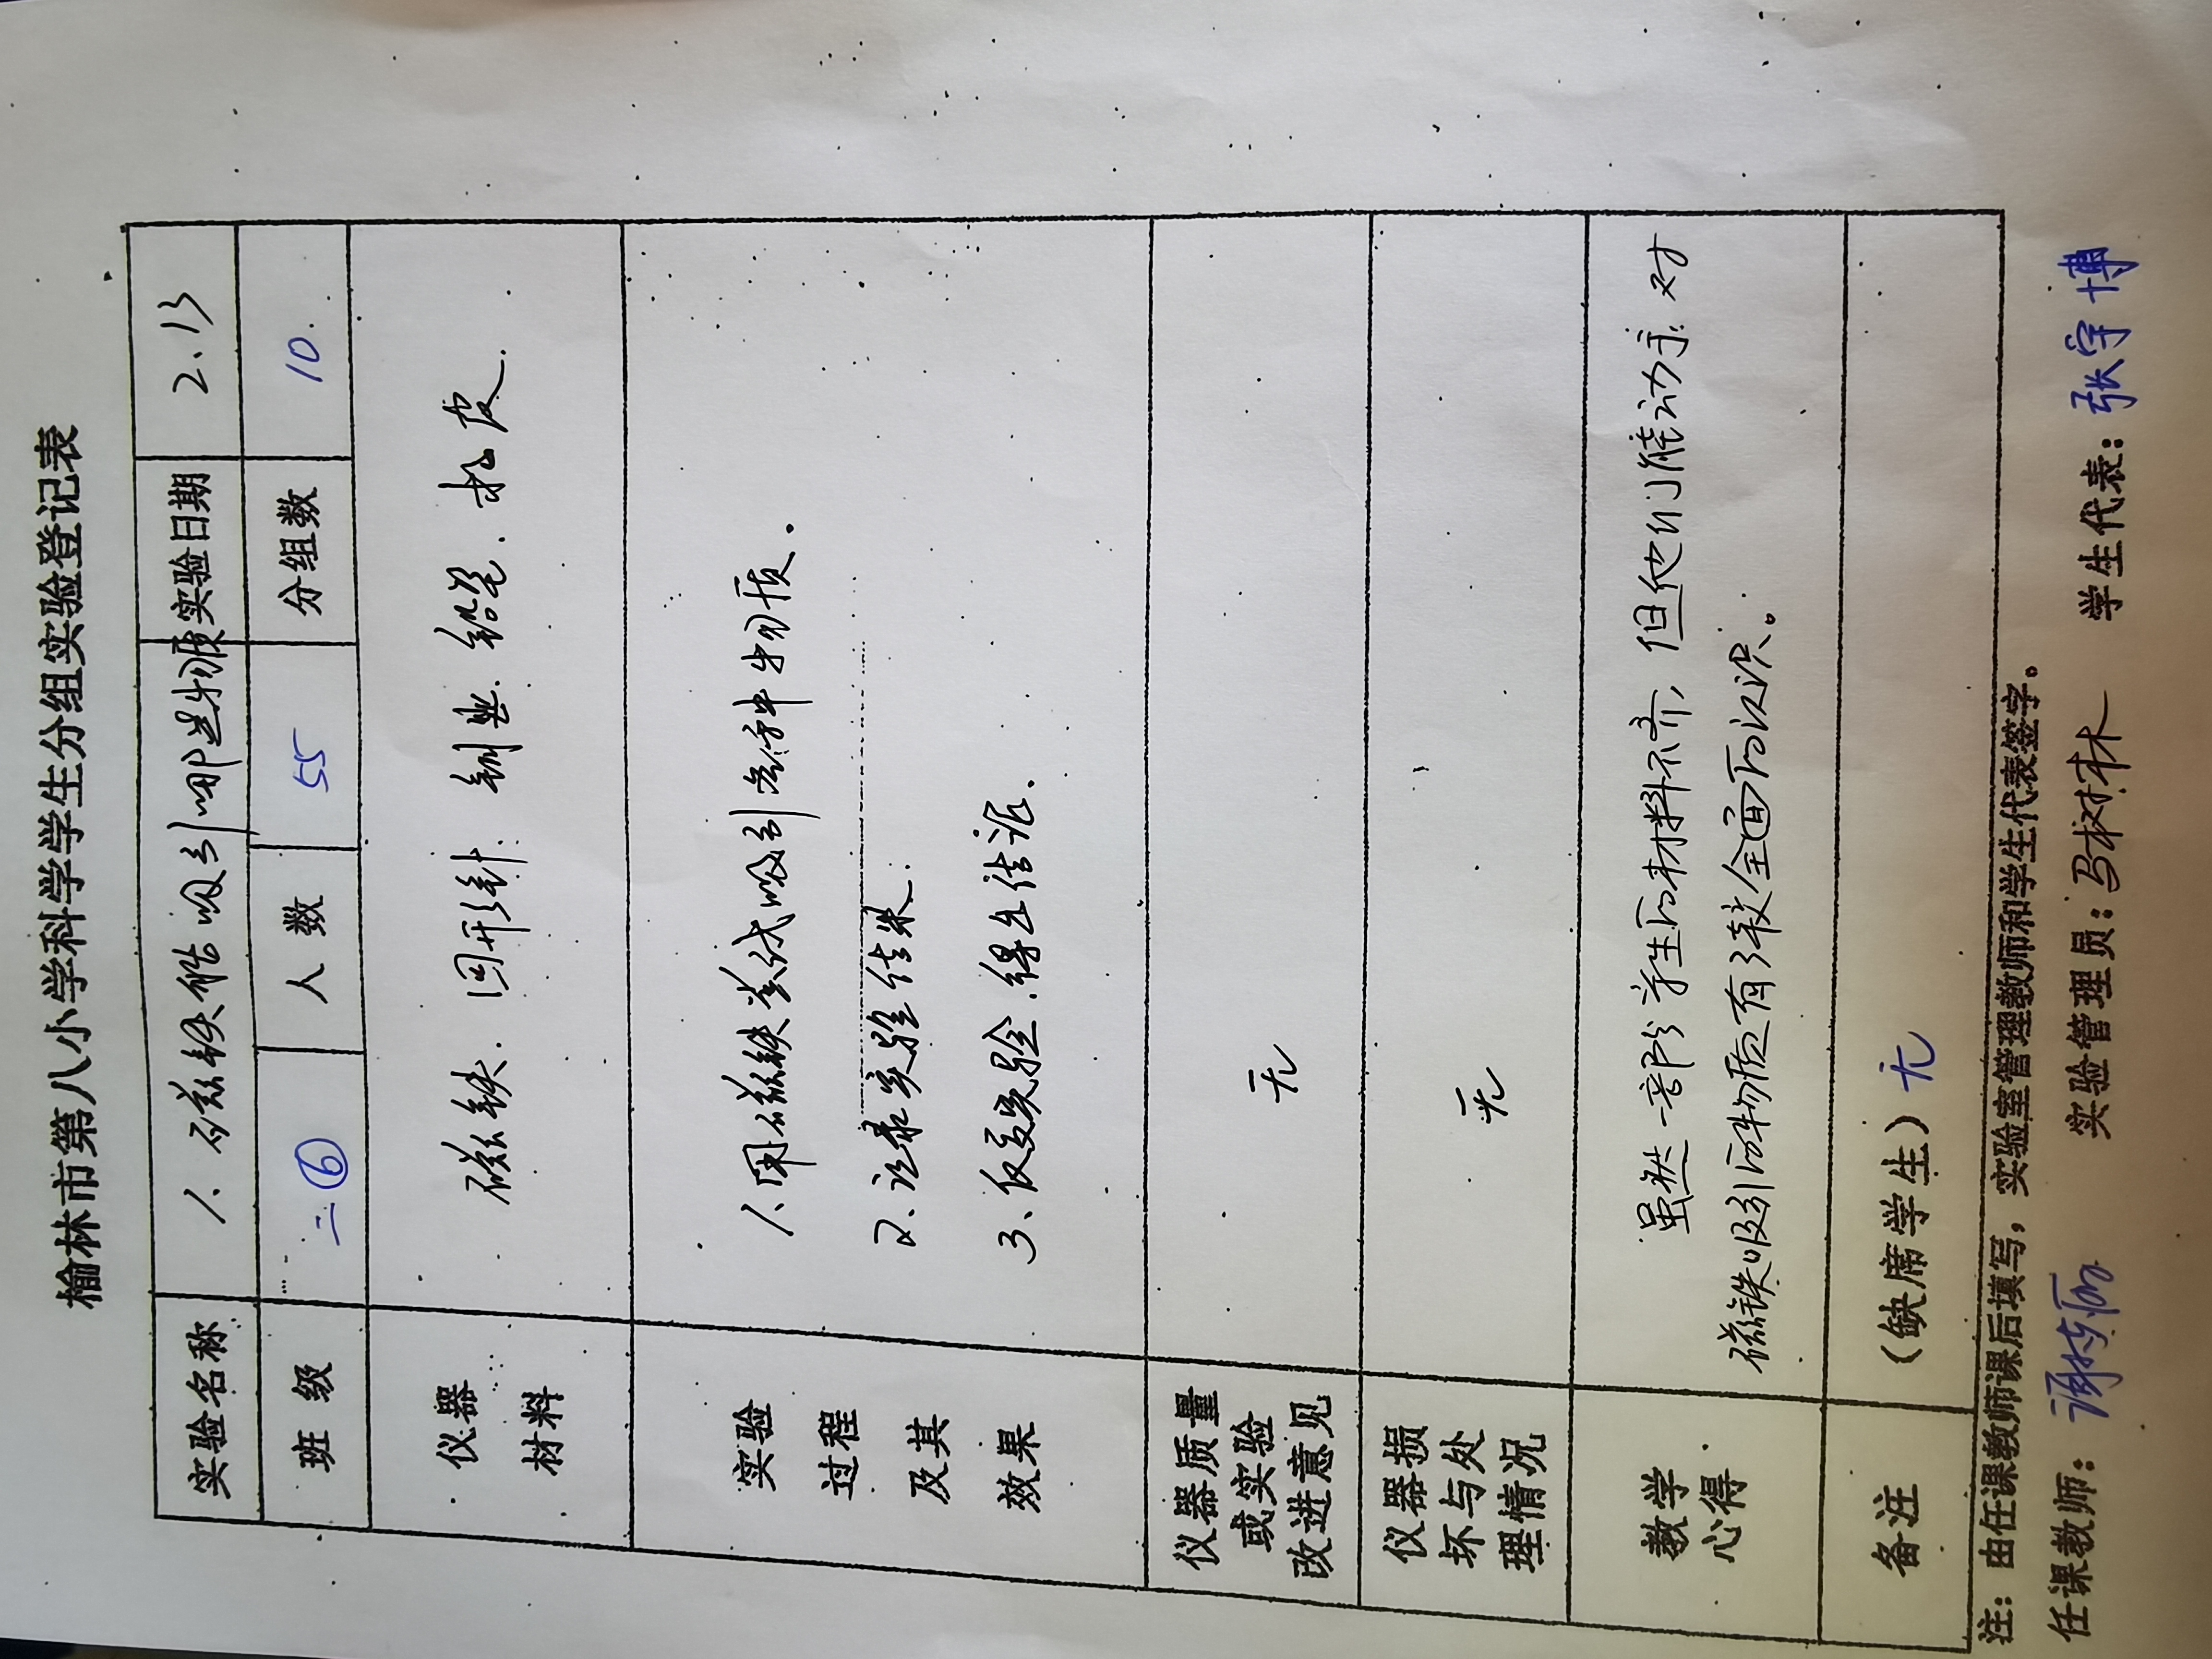 榆林市第八小学科学学生分组实验登记表
实验名称 1、磁铁能吸引哪些物质 实验日期 2.13
班级 二⑥ 人数 55 分组数 10.
仪器材料 磁铁.回形针.铜丝.铅笔.木皮.
实验过程及其效果 1、用磁铁尝试吸引各种物质。
2.记录实验结果.
3、反复实验.得出结论.
仪器质量或实验改进意见 无
仪器损坏与处理情况 无
教学心得 虽然一部分学生的材料不齐,但他们能动手.对
磁铁吸引的物质有了较全面的认识。
备注 (缺席学生)无
注:由任课教师课后填写,实验室管理教师和学生代表签字。
任课教师: 实验管理员:马树林 学生代表:张宇博